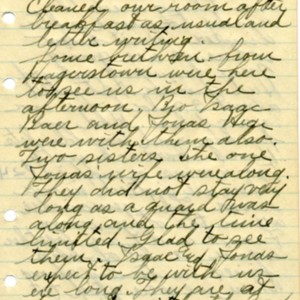 Cleaned our room after
breakfast as usual and
letter writing.
Some brethren from
Hagerstown were here
to see us in the
afternoon. Bro Isaac
Baer and Jonas
were with them also.
Two sisters she one
Jonas wife were along.
They did not stay very
long as a guard was
along and the time
limited. Glad to see
them. Isaac & Jonas
expect to be with us
ere long. They are at